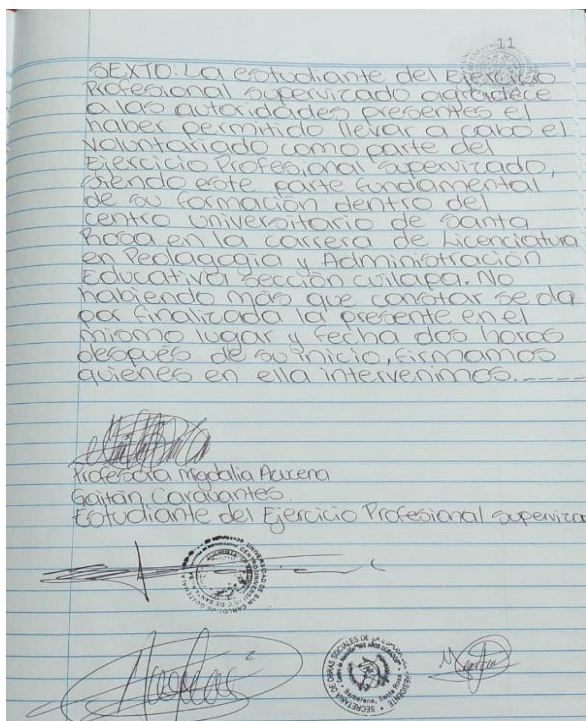 11
SEXTO. La estudiante del Ejercicio
Profesional supervizado agradece
a las autoridades presentes el
haber permitido llevar a cabo el
voluntariado como parte del
Ejercicio Profesional supervizado,
siendo este parte fundamental
de su formación dentro del
centro universitario de santa
Rosa en la carrera de Licenciatura
en Pedagogía y Administración
Educativa sección cuilapa. No
habiendo más que constar se da
por finalizada la presente en el
mismo lugar y fecha dos horas
después de su inicio, firmamos
quienes en ella intervenimos.----
Profesora Magdalia Azucena
Gaitán Caravantes.
Estudiante del Ejercicio Profesional supervizado
UNIVERSIDAD DE SAN CARLOS DE GUATEMALA
SECRETARIA DE OBRAS SOCIALES DE LA
Barberena, Santa Rosa